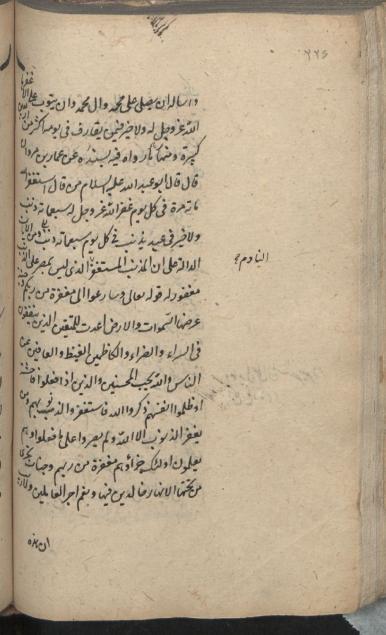 ٢٢٤
واساله ان يصلى على محمد وال محمد وان يتوب على الا غفرها
الله عز وجل له ولا خير فيمن يقارف فى يومه اكثر من اربعين
كبيرة ومنها ما رواه فيه بسنده عن عمار بن مروان
قال قال ابو عبد الله عليه السلام من قال استغفر الله
مائة مرة فى كل يوم غفر الله عز وجل له سبعمائة ذنب
ولا خير فى عبد يذنب فى كل يوم سبعمائة ذنب ومن الايات
الدالة على ان المذنب المستغفر الذى ليس بمصر على الذنب
مغفور له قوله تعالى وسارعوا الى مغفرة من ربكم وجنة
عرضها السموات والارض اعدت للمتقين الذين ينفقون
فى السراء والضراء والكاظمين الغيظ والعافين عن
الناس والله يحب المحسنين والذين اذا فعلوا فاحشة
او ظلموا انفسهم ذكروا الله فاستغفروا لذنوبهم ومن
يغفر الذنوب الا الله ولم يصروا على ما فعلوا وهم
يعلمون اولئك جزاؤهم مغفرة من ربهم وجنات تجرى
من تحتها الانهار خالدين فيها ونعم اجر العاملين ولا ريب
النادم